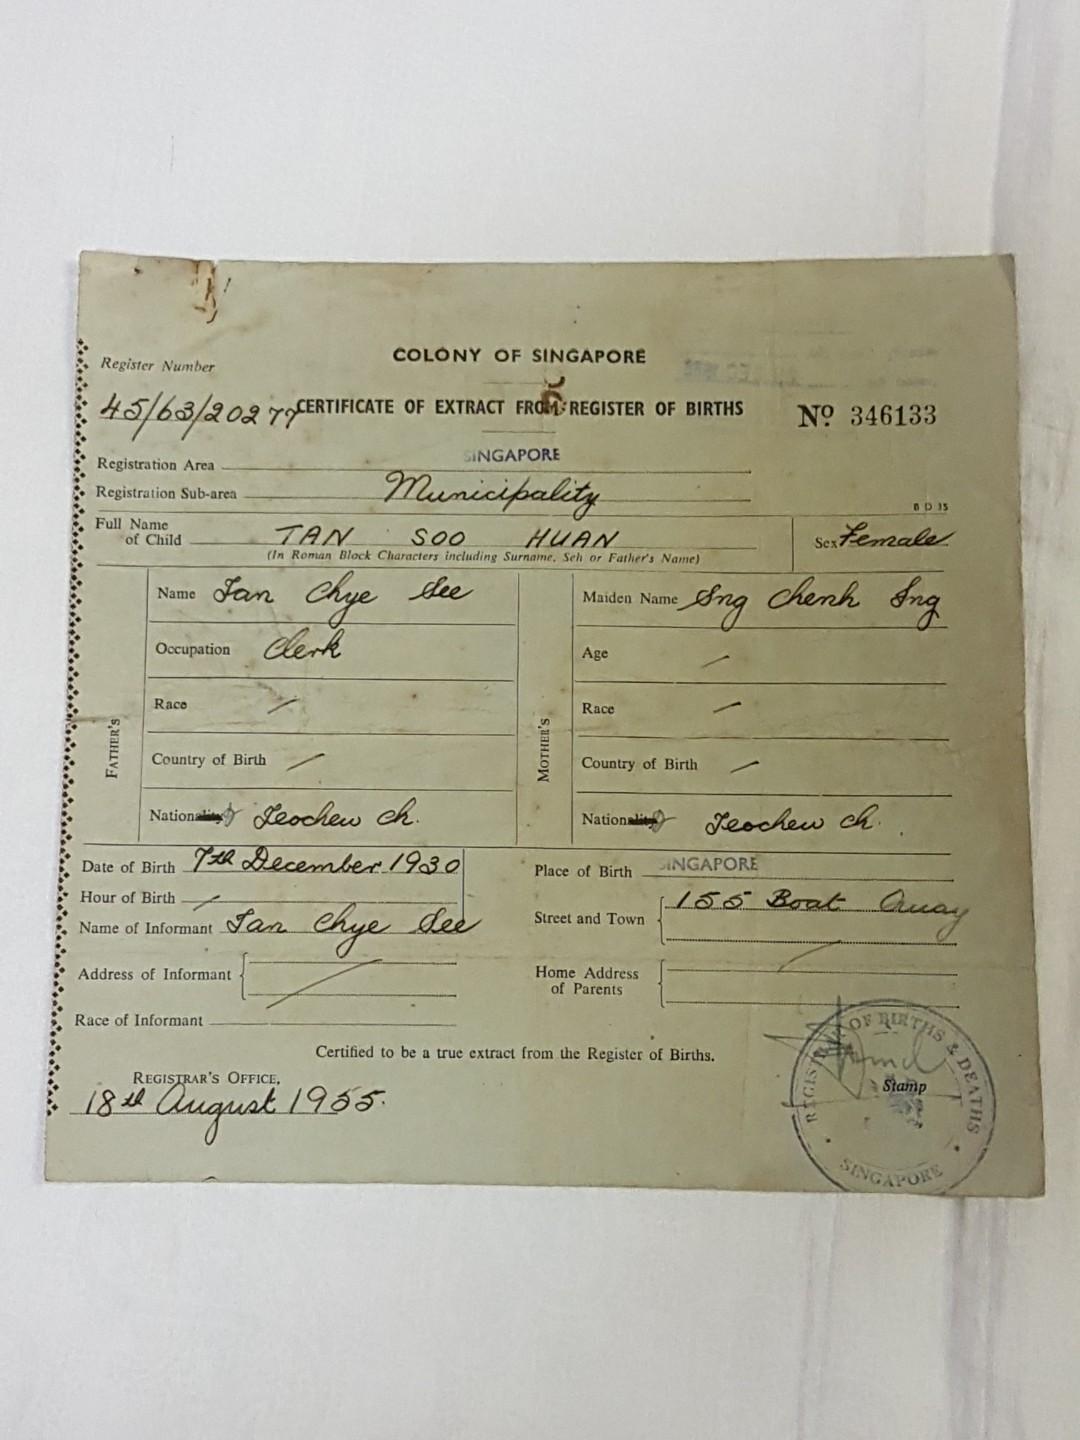 COLONY OF SINGAPORE
Register Number
45/63/20277
CERTIFICATE OF EXTRACT FROM REGISTER OF BIRTHS
Nº 346133
Registration Area SINGAPORE
Registration Sub-area Municipality
B D 15
Full Name of Child TAN SOO HUAN
(In Roman Block Characters including Surname, Seh or Father's Name)
Sex Female
FATHER'S
Name Tan Chye See
Occupation Clerk
Race /
Country of Birth /
Nationality Teochew Ch.
MOTHER'S
Maiden Name Sng Chenh Sng
Age /
Race /
Country of Birth /
Nationality Teochew Ch.
Date of Birth 7th December 1930
Hour of Birth /
Name of Informant Tan Chye See
Address of Informant /
Race of Informant
Place of Birth SINGAPORE
Street and Town 155 Boat Quay
Home Address of Parents /
Certified to be a true extract from the Register of Births.
REGISTRAR'S OFFICE,
18th August 1955.
Stamp
REGISTRAR OF BIRTHS & DEATHS
SINGAPORE